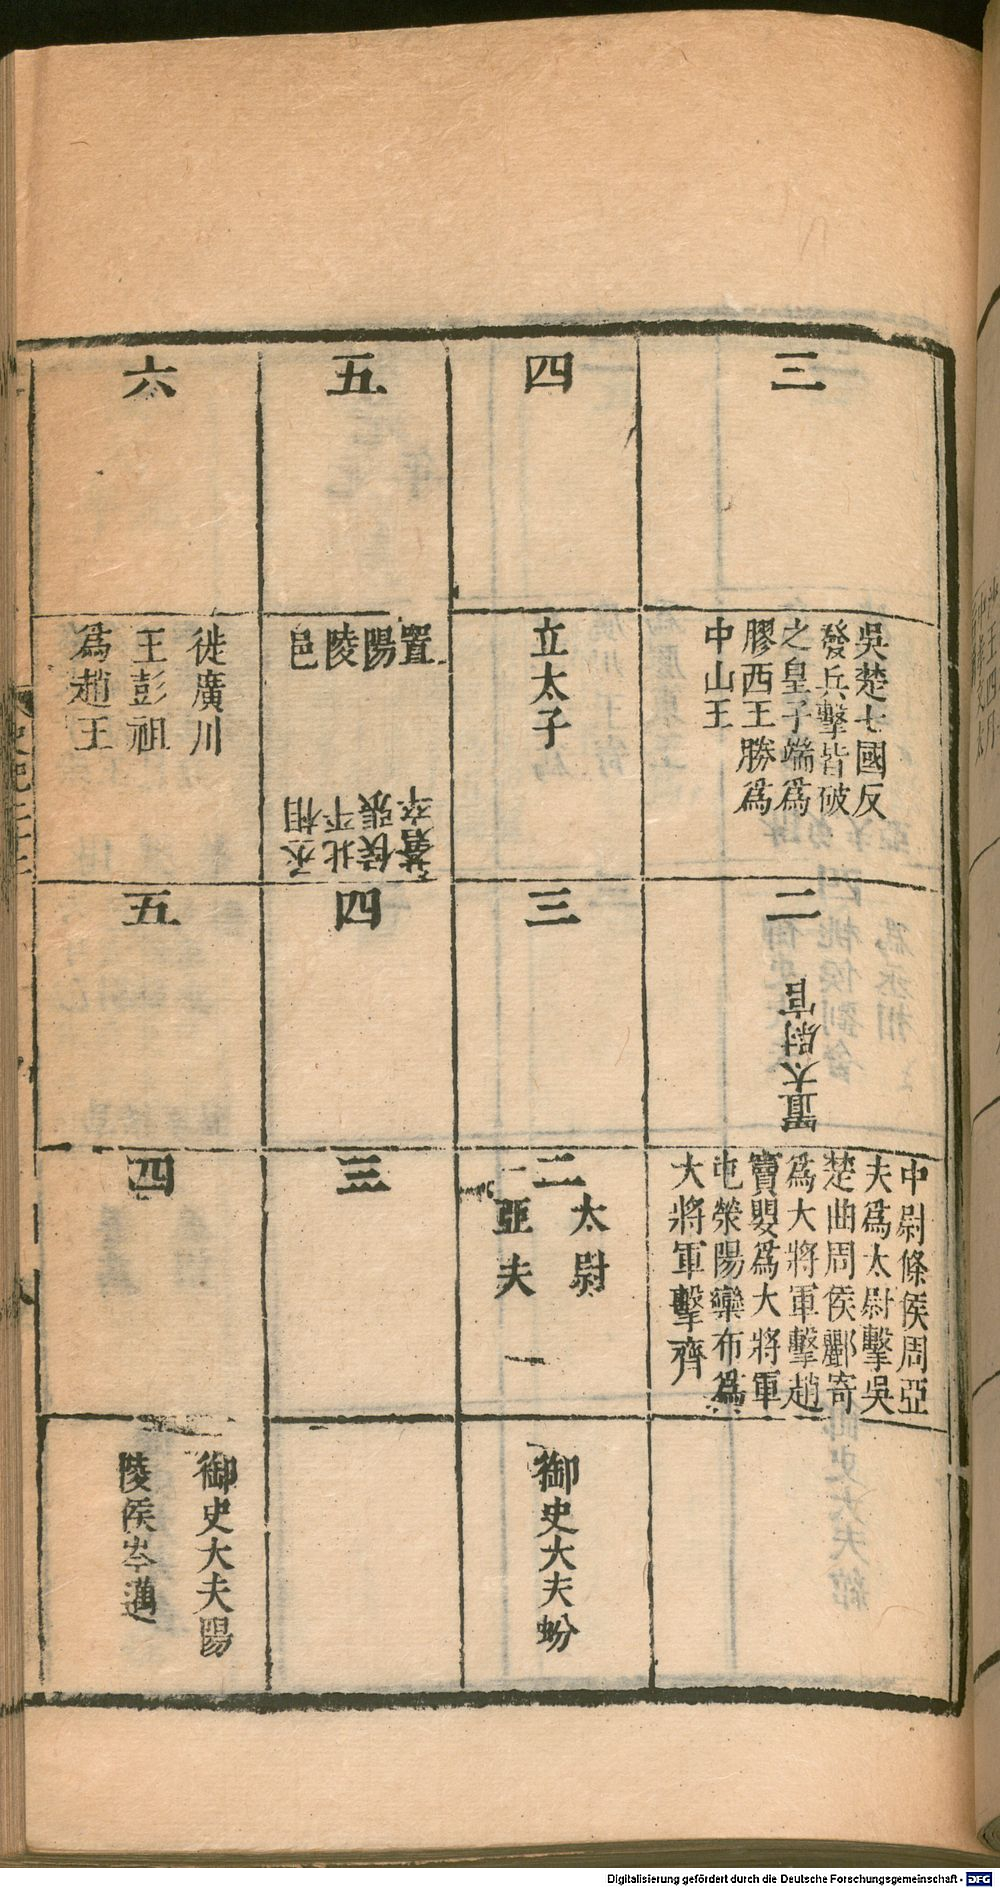 三
吳楚七國反
發兵擊皆破
之皇子端爲
膠西王勝爲
中山王
二
置太尉官
中尉條侯周亞
夫爲太尉擊吳
楚曲周侯酈寄
爲大將軍擊趙
竇嬰爲大將軍
屯滎陽欒布爲
大將軍擊齊
四
立太子
三
二
太尉
亞夫
御史大夫蚡
五
置
陽
陵
邑
丞相
北平
侯張
蒼卒
四
三
六
徙廣川
王彭祖
爲趙王
五
四
御史大夫陽
陵侯岑邁
Digitalisierung gefördert durch die Deutsche Forschungsgemeinschaft - DFG